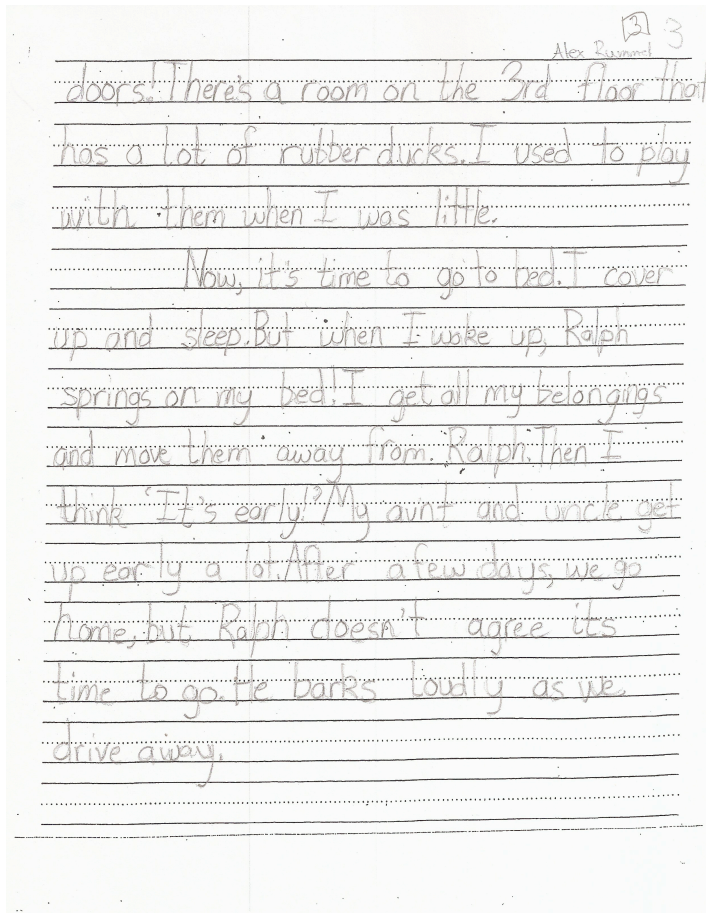 3 3
Alex Rummel
doors! There's a room on the 3rd floor that
has a lot of rubber ducks. I used to play
with them when I was little.
Now, it's time to go to bed. I cover
up and sleep. But when I wake up, Ralph
springs on my bed! I get all my belongings
and move them away from. Ralph. Then I
think "It's early!" My aunt and uncle get
up early a lot. After a few days, we go
home, but Ralph doesn't agree its
time to go. He barks loudly as we
drive away.